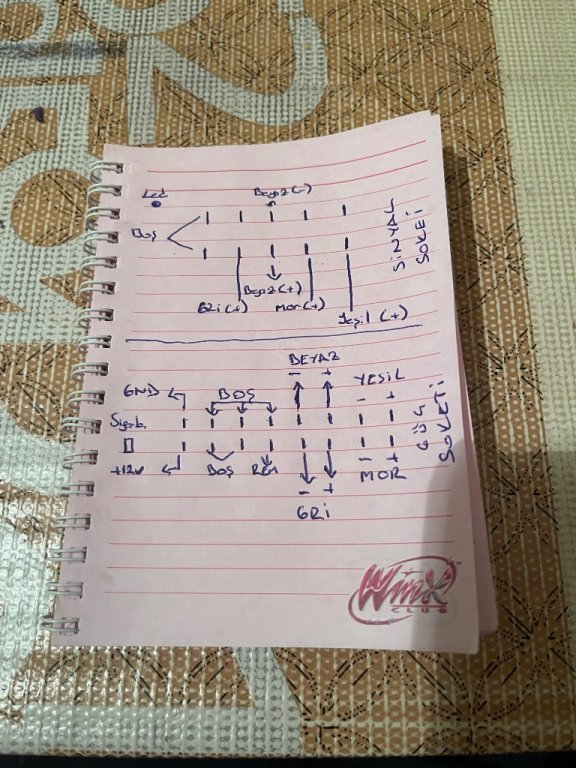 Led Beyaz(-)
Boş
Beyaz(+)
Gri(+) Mor(+)
Yeşil (+)
SİNYAL
SOKETİ
BEYAZ
- +
GND BOŞ YEŞİL
- +
+12V BOŞ REM - +
MOR
- +
GRİ
GÜÇ
SOKETİ
WinX
CLUB